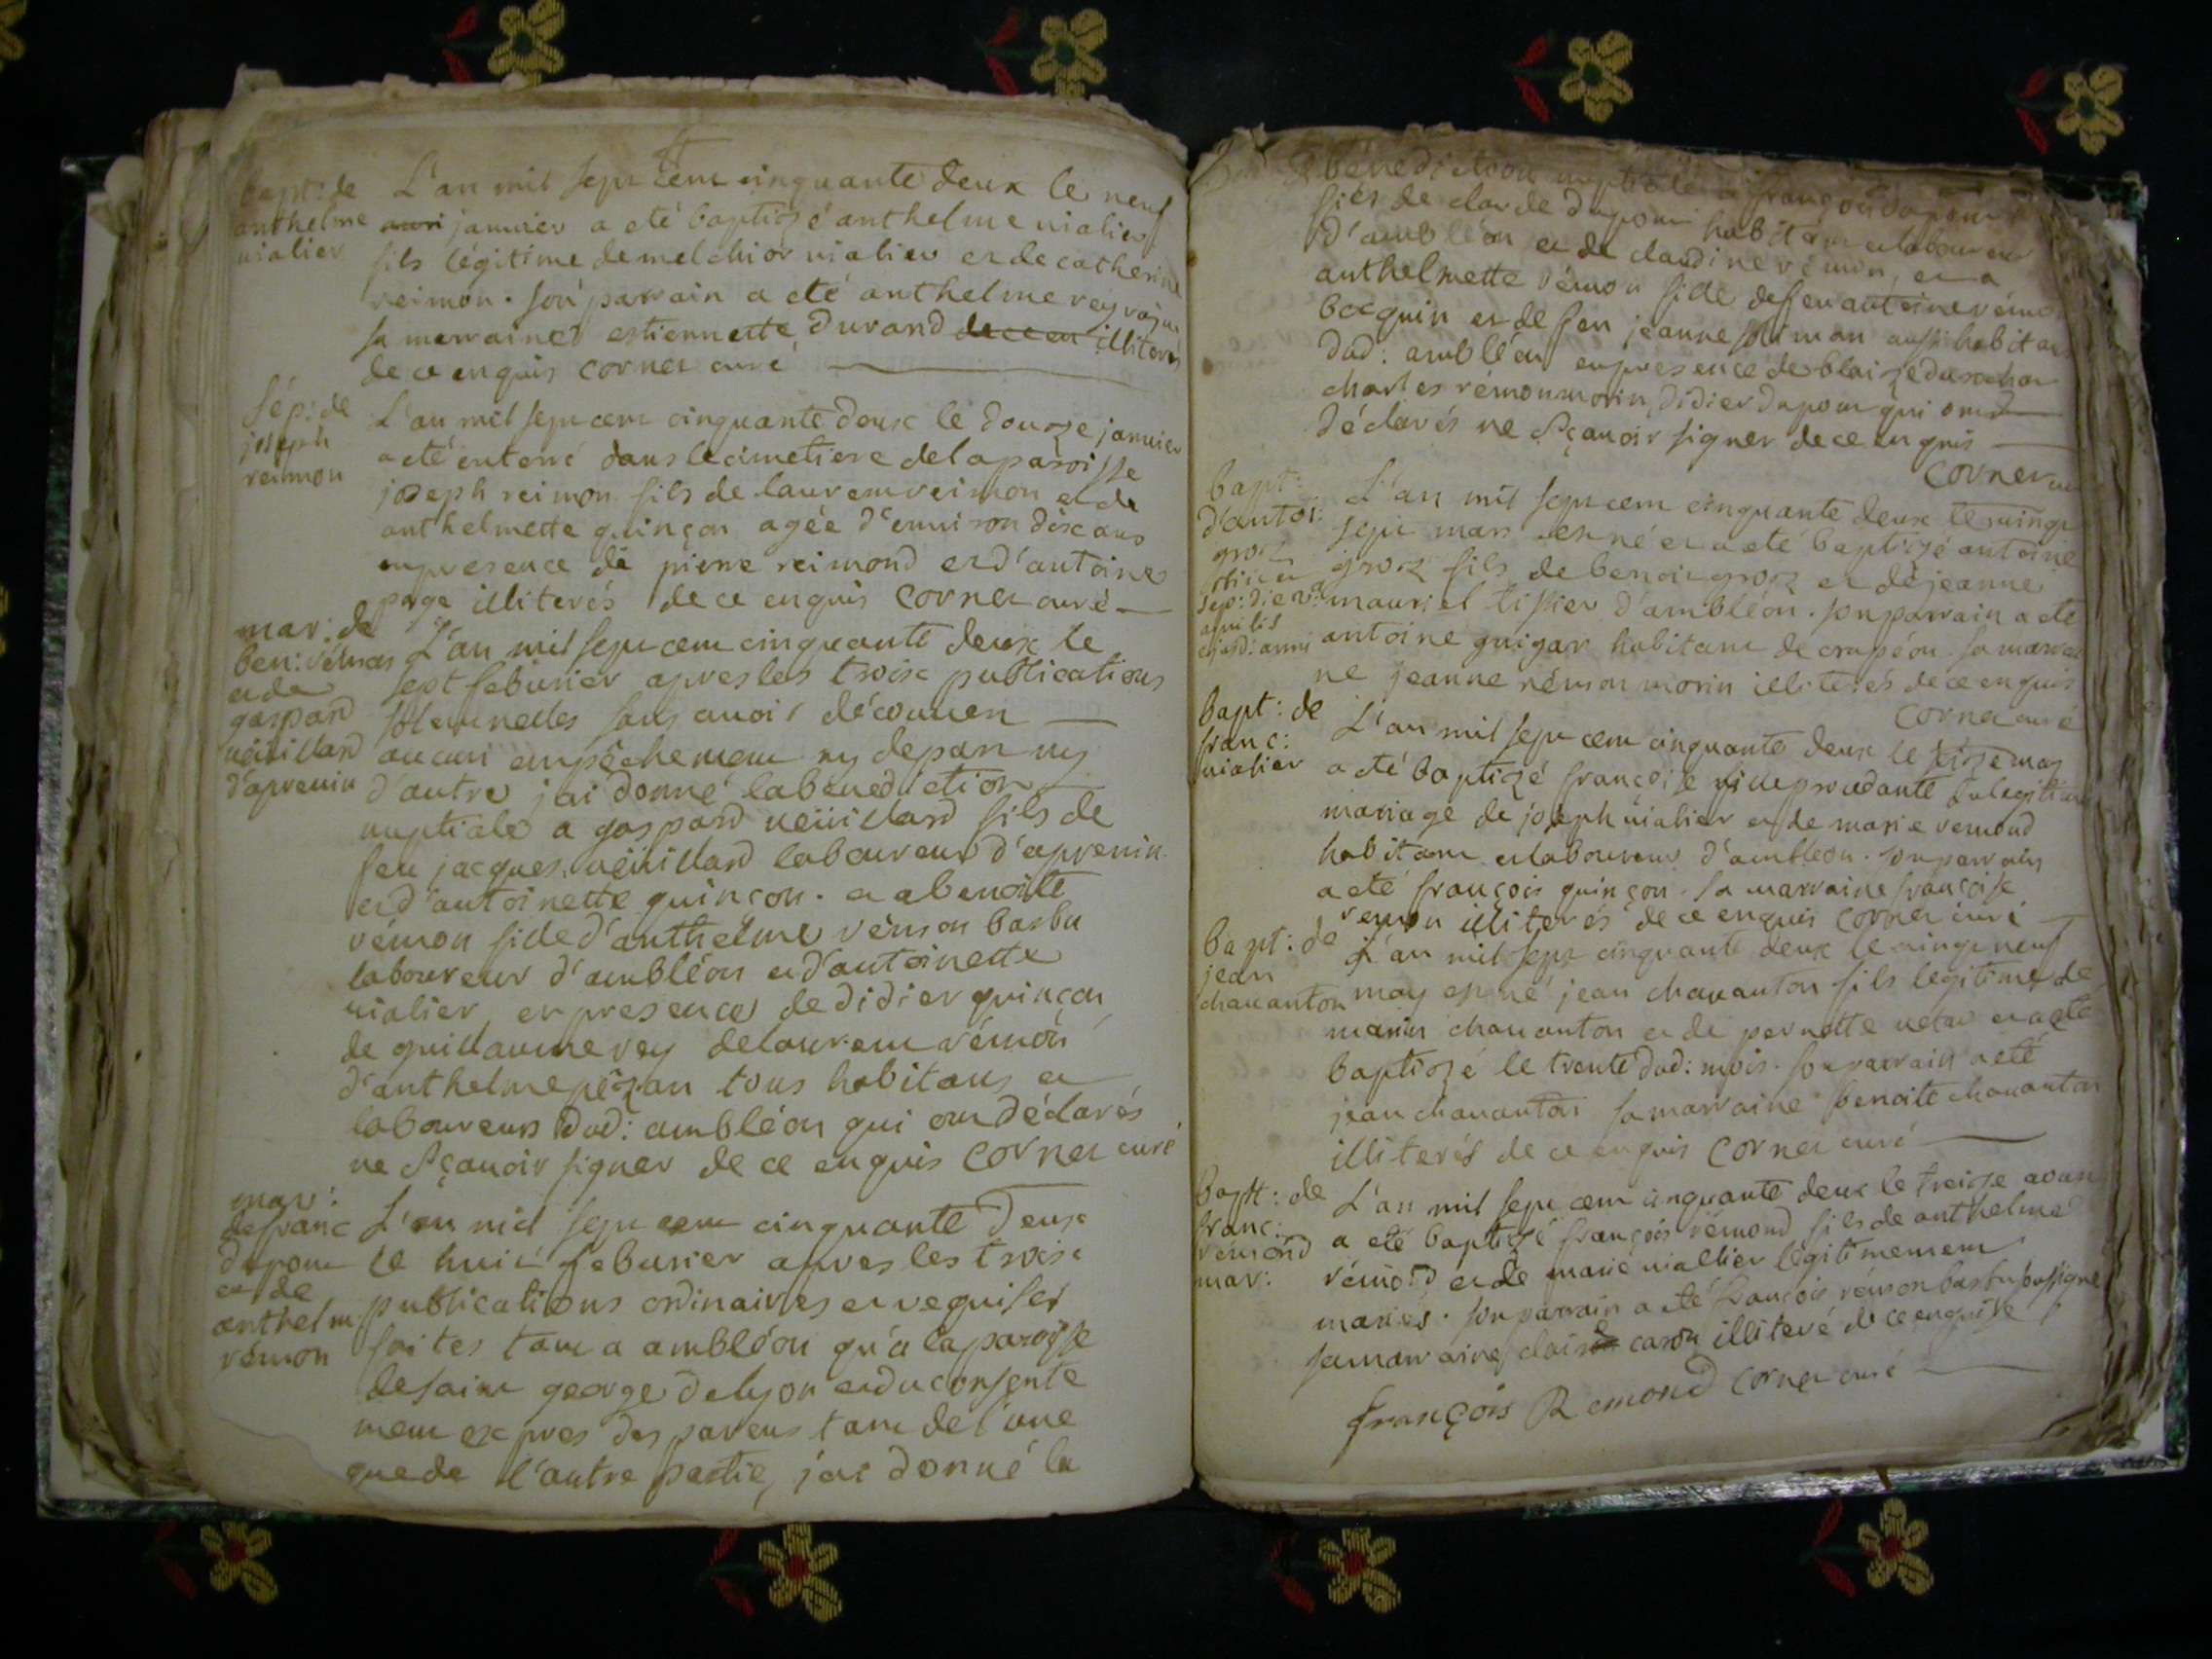 bapt: de
anthelme
vialier
L'an mil sept cent cinquante deux le neuf
janvier a eté baptizé anthelme vialier
fils légitime de melchior vialier et de catherine
reimon. son parrain a eté anthelme rey
sa marraine estiennette durand illiterés
de ce enquis cornet curé
sép: de
joseph
reimon
L'an mil sept cent cinquante deux le douze janvier
a eté enterré dans le cimetiere de la paroisse
joseph reimon fils de laurent reimon et de
anthelmette quinçon agée d'environ dix ans
en presence de pierre reimond et d'antoine
illiterés de ce enquis cornet curé
mar: de
ben: rémon
et de
gaspard
veüillard
d'aprenin
L'an mil sept cent cinquante deux le
sept feburier apres les troix publications
solemnelles sans auoir découuert
aucun empêchement ny de part ny
d'autre j'ai donné la benediction
nuptiale a gaspard veüillard fils de
feu jacques veüillard laboureur d'aprenin
et d'antoinette quinçon. et a benoite
rémon fille d'anthelme rémon barbu
laboureur d'ambléon et d'antoinette
vialier en presence de didier quinçon
de guillaume rey de laurent rémon
d'anthelme pézan tous habitans et
laboureurs dud: ambléon qui ont déclarés
ne sçauoir signer de ce enquis cornet curé
mar:
de franc
dupont
et de
anthelm:
rémon
L'an mil sept cent cinquante deux
le huit feburier apres les troix
publications ordinaires et requises
faites tant a ambléon qu'a la paroisse
de saint george de lyon et du consente
ment expres des parens tant de l'une
que de l'autre partie, j'ai donné la
bénediction nuptiale a françois dupont
fils de claude dupont habitant et laboureur
d'ambléon et de claudine rémon, et a
anthelmette rémon fille de feu antoine rémon
bocquin et de feu jeanne reimon aussi habitans
dud: ambléon en presence de blaize
charles rémon morin, didier dupont qui ont
déclarés ne sçauoir signer de ce enquis
cornet cu
bapt:
d'antoi:
groz
sep: die
aprilis
ejusd: anni
L'an mil sept cent cinquante deux le vingt
sept mars est né et a eté baptizé antoine
groz fils de benoit groz et de jeanne
mauriel tissier d'ambléon. son parrain a eté
antoine guigar habitant de crapéou sa marrai
ne jeanne rémon morin illiterés de ce enquis
cornet curé
bapt: de
franc:
vialier
L'an mil sept cent cinquante deux le seize may
a eté baptizé françoise fille procedante du legitime
mariage de joseph vialier et de marie remond
habitant et laboureur d'ambléon. son parrain
a eté françois quinçon. sa marraine françoise
remon illiterés de ce enquis cornet curé
bapt: de
jean
chauanton
L'an mil sept cinquante deux le vingt neuf
may est né jean chauanton fils legitime de
marin chauanton et de pernette et a eté
baptizé le trente dud: mois. son parrain a eté
jean chauanton sa marraine benoite chauanton
illiterés de ce enquis cornet curé
Bapt: de
franc:
remond
mar:
L'an mil sept cent cinquante deux le treize aoust
a eté baptizé françois rémond fils de anthelme
rémond et de marie viallier légitimement
mariés. son parrain a eté françois rémon barbu soussigné
sa marraine claire caron illiterée de ce enquise
françois Remond cornet curé